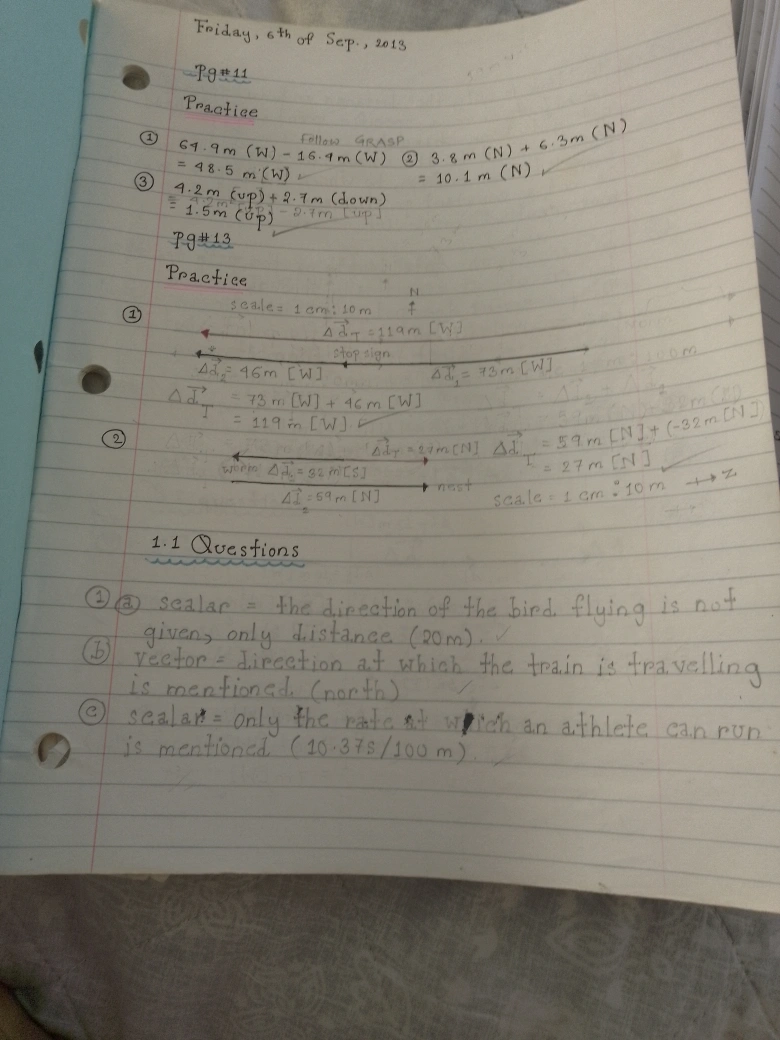 Friday, 6th of Sep., 2013
Pg#11
Practice
Follow GRASP
① 64.9m (W) - 16.4m (W) ② 3.8m (N) + 6.3m (N)
= 48.5 m (W) = 10.1 m (N)
③ 4.2m (up) + 2.7m (down)
= 1.5m (up) - 2.7m [up]
Pg#13
Practice
scale = 1 cm : 10 m N
① Δd⃗T = 119m [W]
stop sign
Δd⃗2 = 46m [W] Δd⃗1 = 73m [W]
Δd⃗T = 73 m [W] + 46m [W]
= 119 m [W]
② Δd⃗T = 27m [N] Δd⃗T = 59m [N] + (-32m [N])
worm Δd⃗ = 32m [S] = 27m [N]
nest scale = 1 cm : 10 m
Δd⃗ = 59m [N]
1.1 Questions
① ⓐ scalar = the direction of the bird flying is not
given, only distance (20m).
ⓑ vector = direction at which the train is travelling
is mentioned (north)
ⓒ scalar = only the rate at which an athlete can run
is mentioned (10.37s/100 m)